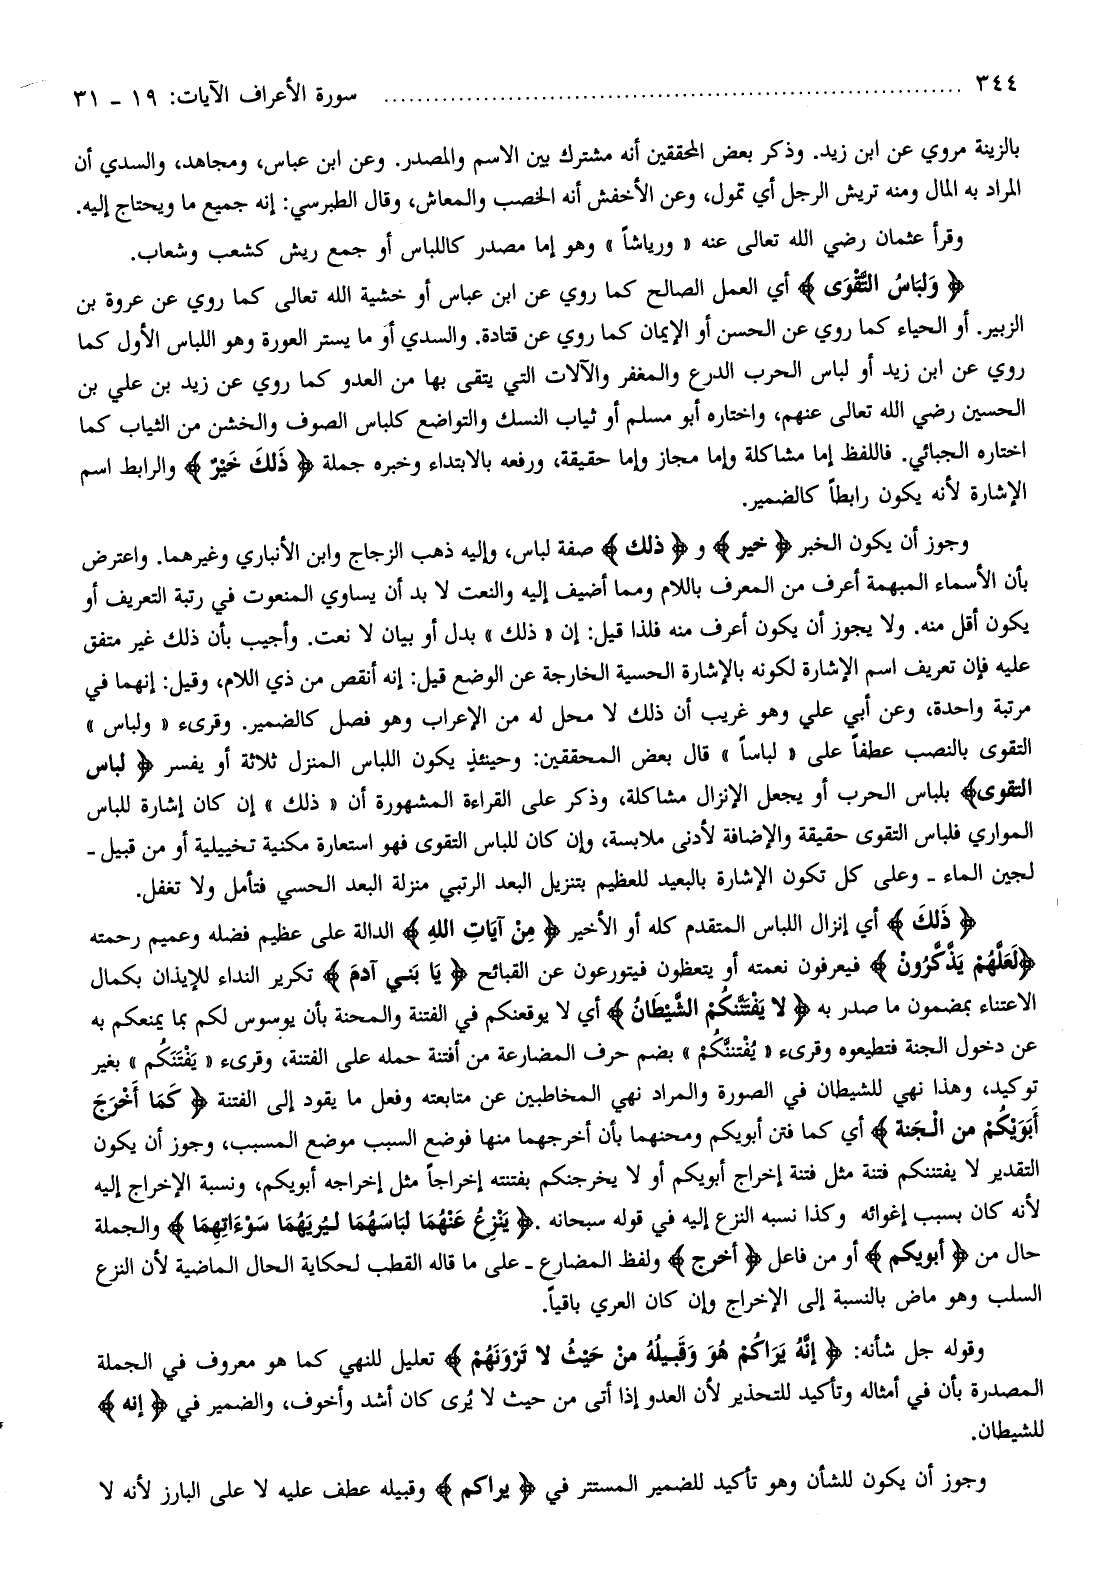 ٣٤٤ ................................................................ سورة الأعراف الآيات: ١٩ - ٣١
بالزينة مروي عن ابن زيد. وذكر بعض المحققين أنه مشترك بين الاسم والمصدر. وعن ابن عباس، ومجاهد، والسدي أن
المراد به المال ومنه تريش الرجل أي تمول، وعن الأخفش أنه الخصب والمعاش، وقال الطبرسي: إنه جميع ما ويحتاج إليه.
وقرأ عثمان رضي الله تعالى عنه « ورياشاً » وهو إما مصدر كاللباس أو جمع ريش كشعب وشعاب.
﴿ وَلِبَاسُ التَّقْوَى ﴾ أي العمل الصالح كما روي عن ابن عباس أو خشية الله تعالى كما روي عن عروة بن
الزبير. أو الحياء كما روي عن الحسن أو الإيمان كما روي عن قتادة. والسدي أو ما يستر العورة وهو اللباس الأول كما
روي عن ابن زيد أو لباس الحرب الدرع والمغفر والآلات التي يتقى بها من العدو كما روي عن زيد بن علي بن
الحسين رضي الله تعالى عنهم، واختاره أبو مسلم أو ثياب النسك والتواضع كلباس الصوف والخشن من الثياب كما
اختاره الجبائي. فاللفظ إما مشاكلة وإما مجاز وإما حقيقة، ورفعه بالابتداء وخبره جملة ﴿ ذَلِكَ خَيْرٌ ﴾ والرابط اسم
الإشارة لأنه يكون رابطاً كالضمير.
وجوز أن يكون الخبر ﴿ خير ﴾ و ﴿ ذلك ﴾ صفة لباس، وإليه ذهب الزجاج وابن الأنباري وغيرهما. واعترض
بأن الأسماء المبهمة أعرف من المعرف باللام ومما أضيف إليه والنعت لا بد أن يساوي المنعوت في رتبة التعريف أو
يكون أقل منه. ولا يجوز أن يكون أعرف منه فلذا قيل: إن « ذلك » بدل أو بيان لا نعت. وأجيب بأن ذلك غير متفق
عليه فإن تعريف اسم الإشارة لكونه بالإشارة الحسية الخارجة عن الوضع قيل: إنه أنقص من ذي اللام، وقيل: إنهما في
مرتبة واحدة، وعن أبي علي وهو غريب أن ذلك لا محل له من الإعراب وهو فصل كالضمير. وقرىء « ولباس »
التقوى بالنصب عطفاً على « لباساً » قال بعض المحققين: وحينئذٍ يكون اللباس المنزل ثلاثة أو يفسر ﴿ لباس
التقوى﴾ بلباس الحرب أو يجعل الإنزال مشاكلة، وذكر على القراءة المشهورة أن « ذلك » إن كان إشارة للباس
المواري فلباس التقوى حقيقة والإضافة لأدنى ملابسة، وإن كان للباس التقوى فهو استعارة مكنية تخييلية أو من قبيل ـ
لجين الماء ـ وعلى كل تكون الإشارة بالبعيد للعظيم بتنزيل البعد الرتبي منزلة البعد الحسي فتأمل ولا تغفل.
﴿ ذَلِكَ ﴾ أي إنزال اللباس المتقدم كله أو الأخير ﴿ مِنْ آيَاتِ اللهِ ﴾ الدالة على عظيم فضله وعميم رحمته
﴿لَعَلَّهُمْ يَذَّكَّرُونْ ﴾ فيعرفون نعمته أو يتعظون فيتورعون عن القبائح ﴿ يَا بَني آدمَ ﴾ تكرير النداء للإيذان بكمال
الاعتناء بمضمون ما صدر به ﴿ لا يَفْتَنَّكُمْ الشَّيْطَانُ ﴾ أي لا يوقعنكم في الفتنة والمحنة بأن يوسوس لكم بما يمنعكم به
عن دخول الجنة فتطيعوه وقرىء « يُفْتننَّكُمْ » بضم حرف المضارعة من أفتنة حمله على الفتنة، وقرىء « يَفْتَنَكُم » بغير
توكيد، وهذا نهي للشيطان في الصورة والمراد نهي المخاطبين عن متابعته وفعل ما يقود إلى الفتنة ﴿ كَمَا أَخْرَجَ
أَبَوَيْكُمْ من الْجَنة ﴾ أي كما فتن أبويكم ومحنهما بأن أخرجهما منها فوضع السبب موضع المسبب، وجوز أن يكون
التقدير لا يفتننكم فتنة مثل فتنة إخراج أبويكم أو لا يخرجنكم بفتنته إخراجاً مثل إخراجه أبويكم، ونسبة الإخراج إليه
لأنه كان بسبب إغوائه وكذا نسبه النزع إليه في قوله سبحانه .﴿ يَنْزِعُ عَنْهُمَا لبَاسَهُمَا ليُريَهُمَا سَوْءَاتِهِمَا ﴾ والجملة
حال من ﴿ أبويكم ﴾ أو من فاعل ﴿ أخرج ﴾ ولفظ المضارع ـ على ما قاله القطب لحكاية الحال الماضية لأن النزع
السلب وهو ماض بالنسبة إلى الإخراج وإن كان العري باقياً.
وقوله جل شأنه: ﴿ إنَّهُ يَرَاكُمْ هُوَ وَقَبيلُهُ منْ حَيْثُ لا تَرْوَنَهُمْ ﴾ تعليل للنهي كما هو معروف في الجملة
المصدرة بأن في أمثاله وتأكيد للتحذير لأن العدو إذا أتى من حيث لا يُرى كان أشد وأخوف، والضمير في ﴿ إنه ﴾
للشيطان.
وجوز أن يكون للشأن وهو تأكيد للضمير المستتر في ﴿ يراكم ﴾ وقبيله عطف عليه لا على البارز لأنه لا